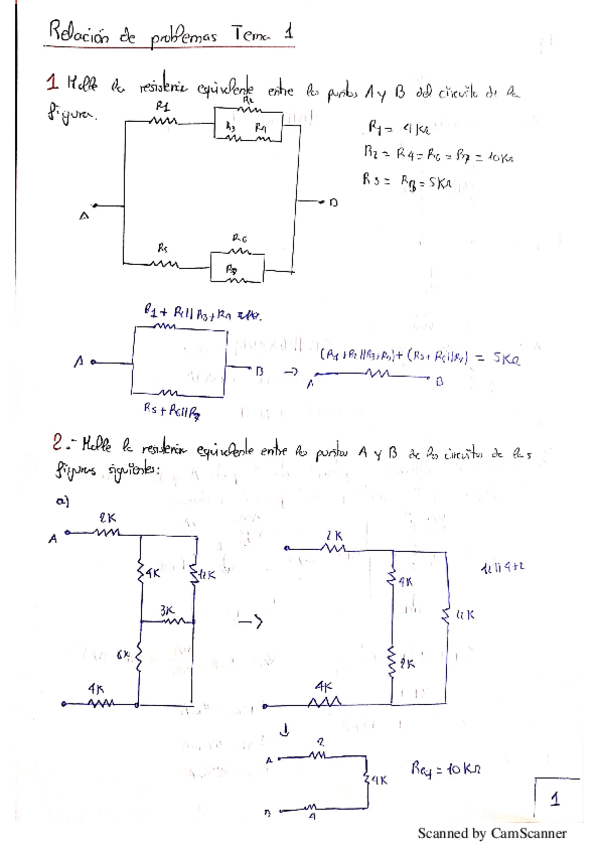 Relación de problemas Tema 1
1 Halle la resistencia equivalente entre los puntos A y B del circuito de la
figura.
R1
R2
R3 R4
R1 = 4KΩ
R2 = R4 = R6 = R7 = 10KΩ
R3 = R5 = 5KΩ
A
B
R5
R6
R7
A
B
->
A
B
= 5KΩ
R5 + R6||R7
2.- Halle la resistencia equivalente entre los puntos A y B de los circuitos de las
figuras siguientes:
a)
A
2K
4K
12K
3K
6K
4K
->
2K
4K
2K
12K
4K
A
2
4K
B
4
Req = 10KΩ
1
Scanned by CamScanner